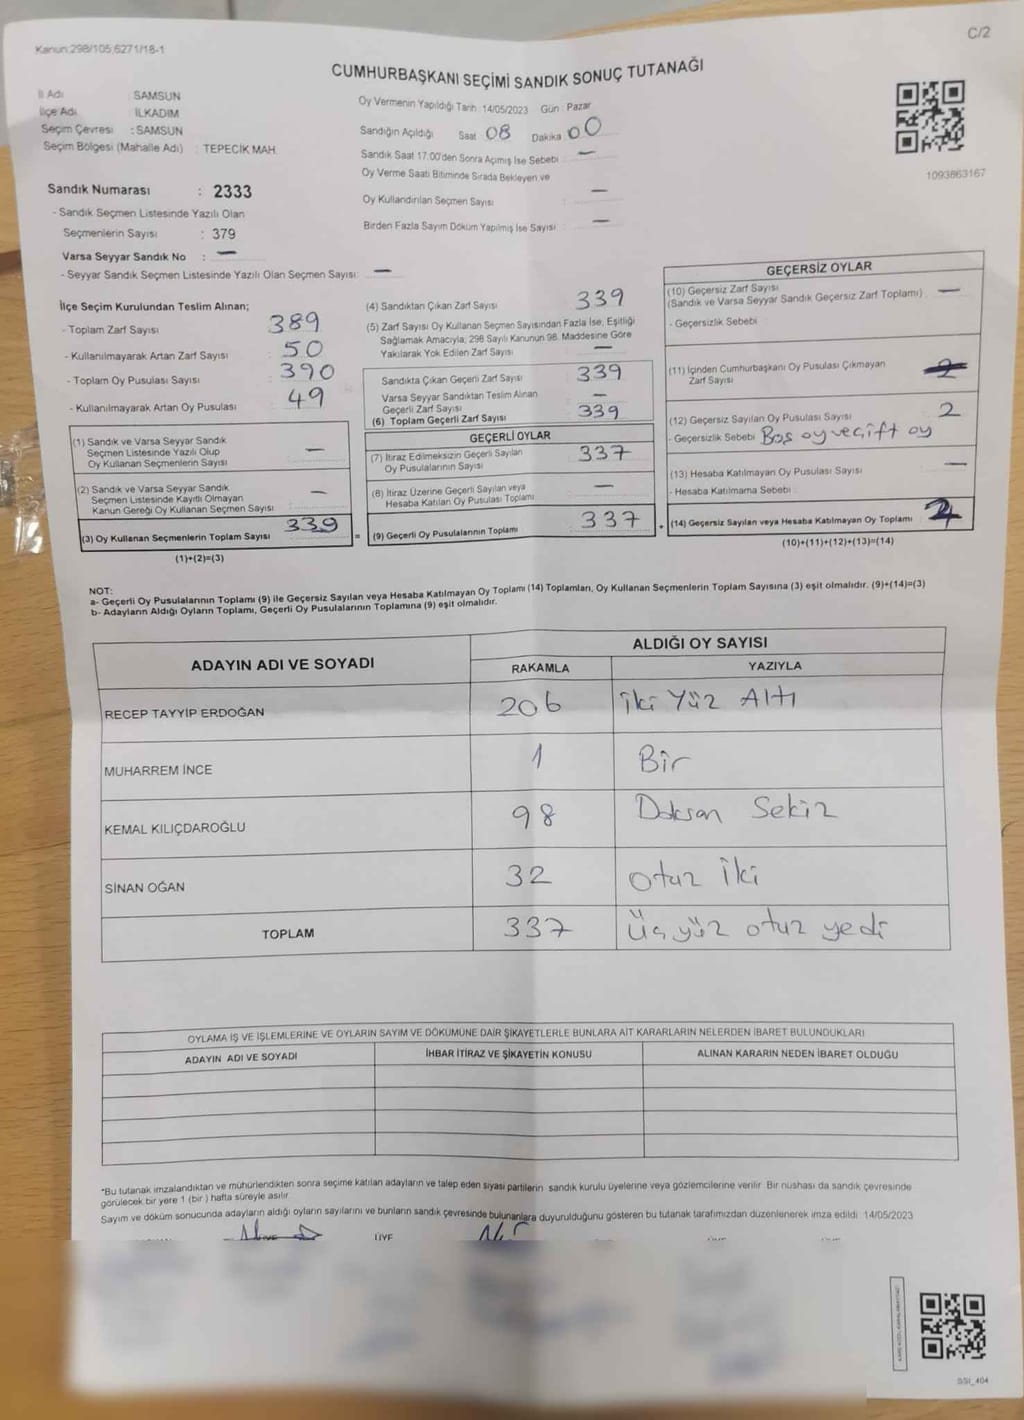 Kanun:298/105,6271/18-1
C/2
CUMHURBAŞKANI SEÇİMİ SANDIK SONUÇ TUTANAĞI
İl Adı : SAMSUN
İlçe Adı : İLKADIM
Seçim Çevresi : SAMSUN
Seçim Bölgesi (Mahalle Adı) : TEPECİK MAH.
Sandık Numarası : 2333
- Sandık Seçmen Listesinde Yazılı Olan
Seçmenlerin Sayısı : 379
Varsa Seyyar Sandık No : —
- Seyyar Sandık Seçmen Listesinde Yazılı Olan Seçmen Sayısı: —
Oy Vermenin Yapıldığı Tarih: 14/05/2023 Gün : Pazar
Sandığın Açıldığı Saat 08 Dakika 00
Sandık Saat 17.00'den Sonra Açımış İse Sebebi : —
Oy Verme Saati Bitiminde Sırada Bekleyen ve
Oy Kullandırılan Seçmen Sayısı : —
Birden Fazla Sayım Döküm Yapılmış İse Sayısı : —
1093863167
İlçe Seçim Kurulundan Teslim Alınan;
- Toplam Zarf Sayısı : 389
- Kullanılmayarak Artan Zarf Sayısı : 50
- Toplam Oy Pusulası Sayısı : 390
- Kullanılmayarak Artan Oy Pusulası : 49
(1) Sandık ve Varsa Seyyar Sandık
Seçmen Listesinde Yazılı Olup
Oy Kullanan Seçmenlerin Sayısı —
(2) Sandık ve Varsa Seyyar Sandık
Seçmen Listesinde Kayıtlı Olmayan
Kanun Gereği Oy Kullanan Seçmen Sayısı —
(3) Oy Kullanan Seçmenlerin Toplam Sayısı 339
(1)+(2)=(3)
(4) Sandıktan Çıkan Zarf Sayısı 339
(5) Zarf Sayısı Oy Kullanan Seçmen Sayısından Fazla İse, Eşitliği
Sağlamak Amacıyla, 298 Sayılı Kanunun 98. Maddesine Göre
Yakılarak Yok Edilen Zarf Sayısı —
Sandıkta Çıkan Geçerli Zarf Sayısı 339
Varsa Seyyar Sandıktan Teslim Alınan
Geçerli Zarf Sayısı —
(6) Toplam Geçerli Zarf Sayısı 339
GEÇERLİ OYLAR
(7) İtiraz Edilmeksizin Geçerli Sayılan
Oy Pusulalarının Sayısı 337
(8) İtiraz Üzerine Geçerli Sayılan veya
Hesaba Katılan Oy Pusulası Toplamı —
= (9) Geçerli Oy Pusulalarının Toplamı 337
GEÇERSİZ OYLAR
(10) Geçersiz Zarf Sayısı
(Sandık ve Varsa Seyyar Sandık Geçersiz Zarf Toplamı) —
- Geçersizlik Sebebi :
(11) İçinden Cumhurbaşkanı Oy Pusulası Çıkmayan
Zarf Sayısı
(12) Geçersiz Sayılan Oy Pusulası Sayısı 2
- Geçersizlik Sebebi Boş oy ve çift oy
(13) Hesaba Katılmayan Oy Pusulası Sayısı —
- Hesaba Katılmama Sebebi :
+ (14) Geçersiz Sayılan veya Hesaba Katılmayan Oy Toplamı 2
(10)+(11)+(12)+(13)=(14)
NOT:
a- Geçerli Oy Pusulalarının Toplamı (9) ile Geçersiz Sayılan veya Hesaba Katılmayan Oy Toplamı (14) Toplamları, Oy Kullanan Seçmenlerin Toplam Sayısına (3) eşit olmalıdır. (9)+(14)=(3)
b- Adayların Aldığı Oyların Toplamı, Geçerli Oy Pusulalarının Toplamına (9) eşit olmalıdır.
ADAYIN ADI VE SOYADI ALDIĞI OY SAYISI
RAKAMLA YAZIYLA
RECEP TAYYİP ERDOĞAN 206 İki Yüz Altı
MUHARREM İNCE 1 Bir
KEMAL KILIÇDAROĞLU 98 Doksan Sekiz
SİNAN OĞAN 32 otuz iki
TOPLAM 337 Üç yüz otuz yedi
OYLAMA İŞ VE İŞLEMLERİNE VE OYLARIN SAYIM VE DÖKÜMÜNE DAİR ŞİKAYETLERLE BUNLARA AİT KARARLARIN NELERDEN İBARET BULUNDUKLARI
ADAYIN ADI VE SOYADI İHBAR İTİRAZ VE ŞİKAYETİN KONUSU ALINAN KARARIN NEDEN İBARET OLDUĞU
*Bu tutanak imzalandıktan ve mühürlendikten sonra seçime katılan adayların ve talep eden siyasi partilerin sandık kurulu üyelerine veya gözlemcilerine verilir. Bir nüshası da sandık çevresinde
görülecek bir yere 1 (bir ) hafta süreyle asılır.
Sayım ve döküm sonucunda adayların aldığı oyların sayılarını ve bunların sandık çevresinde bulunanlara duyurulduğunu gösteren bu tutanak tarafımızdan düzenlenerek imza edildi. 14/05/2023
ÜYE
SSI_404